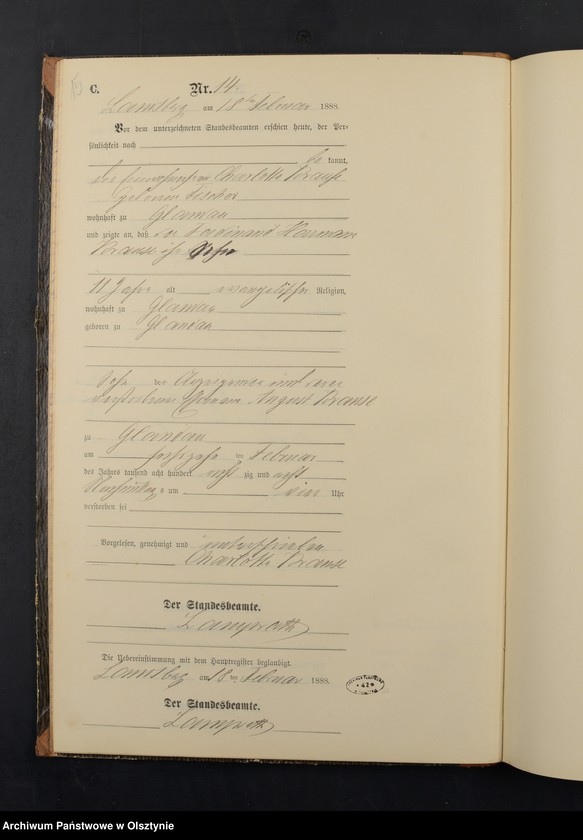 C. Nr. 14.
Landsberg am 18ten Februar 1888.
Vor dem unterzeichneten Standesbeamten erschien heute, der Per-
sönlichkeit nach
be kannt,
die Charlotte Krause
geborene Fischer
wohnhaft zu Glandau
und zeigte an, daß der Ferdinand Hermann
Krause ihr Sohn
11 Jahre alt evangelischer Religion,
wohnhaft zu Glandau
geboren zu Glandau
Sohn der Anzeigenden und deren
verstorbenen Ehemann August Krause
zu Glandau
am sechszehn ten Februar
des Jahrs tausend acht hundert acht zig und acht
Nachmittags um vier Uhr
verstorben sei
Vorgelesen, genehmigt und unterschrieben
Charlotte Krause
Der Standesbeamte.
Die Uebereinstimmung mit dem Hauptregister beglaubigt.
Landsberg am 18ten Februar 1888.
Der Standesbeamte.
Archiwum Państwowe w Olsztynie